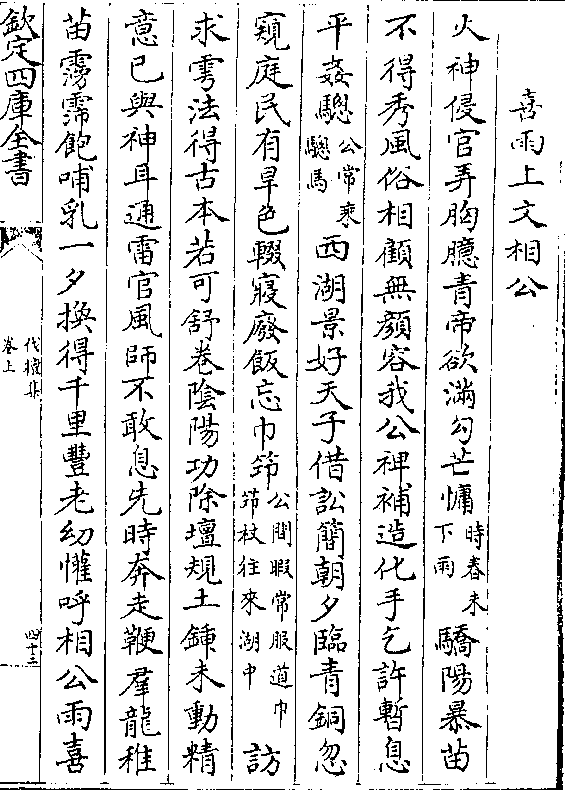 喜雨上文相公
火神侵官弄胸臆青帝欲滿勾芒慵時春未下雨驕陽暴苗
不得秀風俗相顧無顔容我公裨補造化手乞許暫息
平姦驄公常乘驄馬西湖景好天子借訟簡朝夕臨青銅忽
窺庭民有旱色輟寢廢飯忘巾筇公閒暇常服道巾筇杖往來湖中訪
求雩法得古本若可舒卷陰陽功除壇規土鍾未動精
意已與神耳通雷官風師不敢息先時奔走鞭羣龍稚
苗霶霈飽哺乳一夕換得千里豐老幼懽呼相公雨喜
欽定四庫全書
伐檀集
卷上
四十三